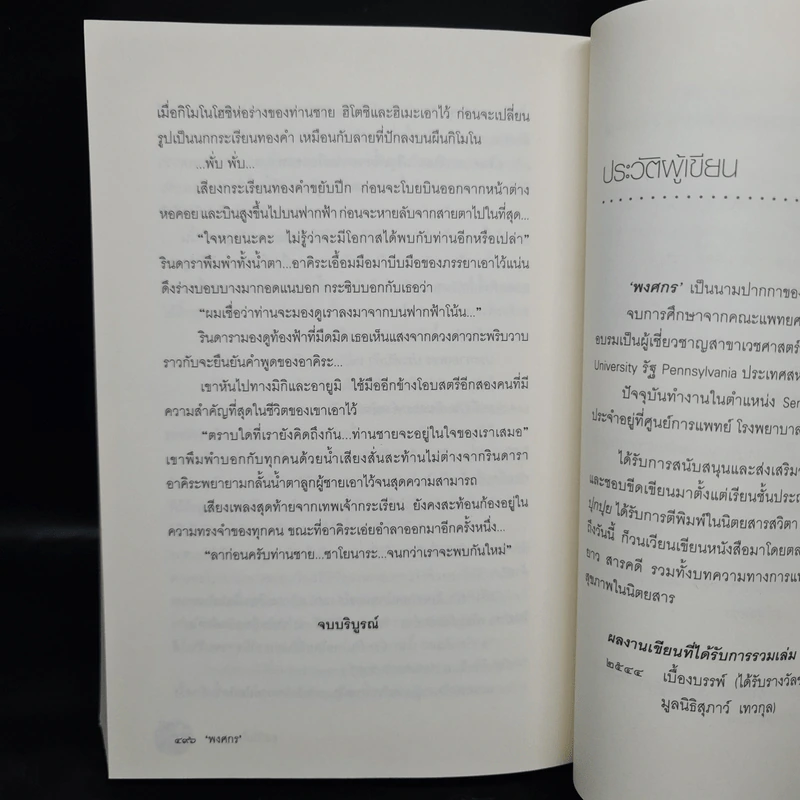 เมื่อกิโมโนโฮชิห่อร่างของท่านชาย ฮิโตชิและฮิเมะเอาไว้ ก่อนจะเปลี่ยน
รูปเป็นนกกระเรียนทองคำ เหมือนกับลายที่ปักลงบนผืนกิโมโน
...พั่บ พั่บ...
เสียงกระเรียนทองคำขยับปีก ก่อนจะโบยบินออกจากหน้าต่าง
หอคอย และบินสูงขึ้นไปบนฟากฟ้า ก่อนจะหายลับจากสายตาไปในที่สุด...
“ใจหายนะคะ ไม่รู้ว่าจะมีโอกาสได้พบกับท่านอีกหรือเปล่า”
รินดาราพึมพำทั้งน้ำตา...อาคิระเอื้อมมือมาบีบมือของภรรยาเอาไว้แน่น
ดึงร่างบอบบางมากอดแนบอก กระซิบบอกกับเธอว่า
“ผมเชื่อว่าท่านจะมองดูเราลงมาจากบนฟากฟ้าโน้น...”
รินดารามองดูท้องฟ้าที่มืดมิด เธอเห็นแสงจากดวงดาวกะพริบวาบ
ราวกับจะยืนยันคำพูดของอาคิระ...
เขาหันไปทางมิกิและอายูมิ ใช้มืออีกข้างโอบสตรีอีกสองคนที่มี
ความสำคัญที่สุดในชีวิตของเขาเอาไว้
“ตราบใดที่เรายังคิดถึงกัน...ท่านชายจะอยู่ในใจของเราเสมอ”
เขาพึมพำบอกกับทุกคนด้วยน้ำเสียงสั่นสะท้านไม่ต่างจากรินดารา
อาคิระพยายามกลั้นน้ำตาลูกผู้ชายเอาไว้จนสุดความสามารถ
เสียงเพลงสุดท้ายจากเทพเจ้ากระเรียน ยังคงสะท้อนก้องอยู่ใน
ความทรงจำของทุกคน ขณะที่อาคิระเอ่ยอำลาออกมาอีกครั้งหนึ่ง...
“ลาก่อนครับท่านชาย...ซาโยนาระ...จนกว่าเราจะพบกันใหม่”
จบบริบูรณ์
๔๙๖ ‘พงศกร’
ประวัติผู้เขียน
‘พงศกร’ เป็นนามปากกาของ
จบการศึกษาจากคณะแพทยศ
อบรมเป็นผู้เชี่ยวชาญสาขาเวชศาสตร์
University รัฐ Pennsylvania ประเทศสห
ปัจจุบันทำงานในตำแหน่ง Sen
ประจำอยู่ที่ศูนย์การแพทย์ โรงพยาบาล
ได้รับการสนับสนุนและส่งเสริม
และชอบขีดเขียนมาตั้งแต่เรียนชั้นประถ
ปุกปุย ได้รับการตีพิมพ์ในนิตยสารสวิตา
ถึงวันนี้ ก็วนเวียนเขียนหนังสือมาโดยตล
ยาว สารคดี รวมทั้งบทความทางการแพ
สุขภาพในนิตยสาร
ผลงานเขียนที่ได้รับการรวมเล่ม
๒๕๔๔ เบื้องบรรพ์ (ได้รับรางวัลช
มูลนิธิสุภาว์ เทวกุล)